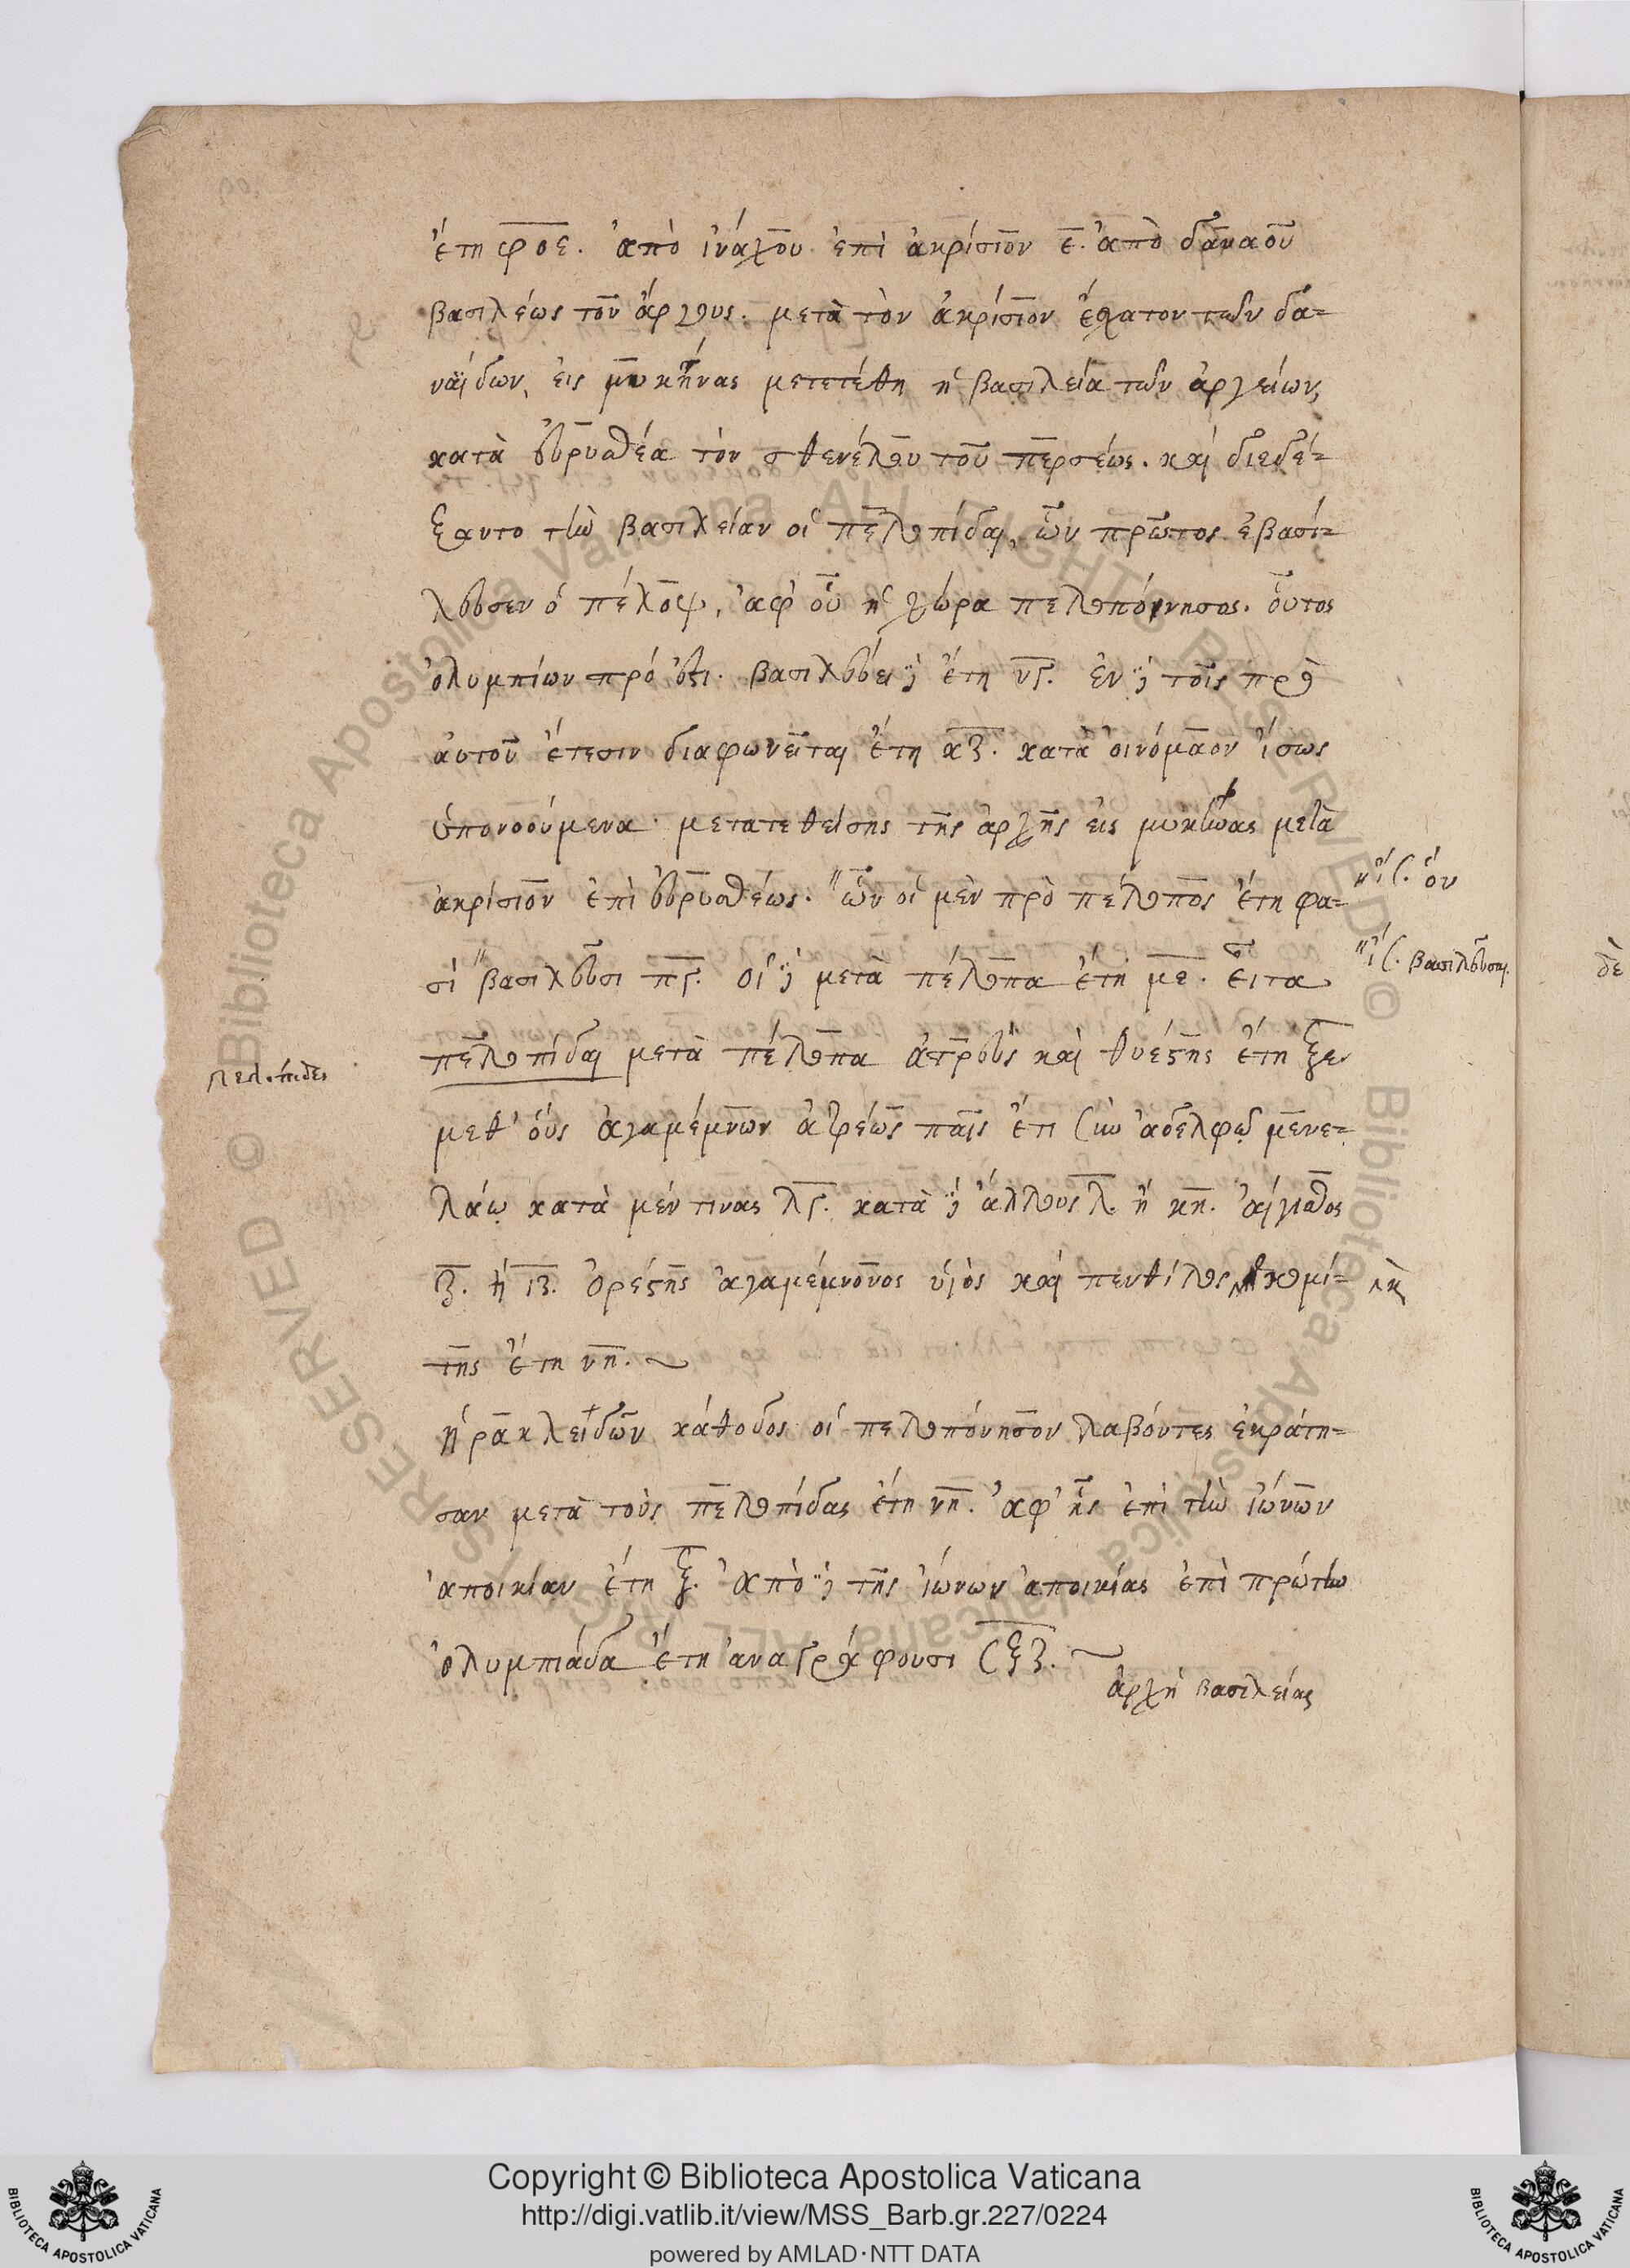 ἔτη φοε. ἀπὸ ἰνάχου ἐπὶ ἀκρίσιον ε. ἀπὸ δαναοῦ
βασιλέως τοῦ ἄργους. μετὰ τὸν ἀκρίσιον ἔσχατον τῶν δα-
ναΐδων, εἰς μυκήνας μετετέθη ἡ βασιλεία τῶν ἀργείων,
κατὰ εὐρυσθέα τὸν σθενέλου τοῦ περσέως. καὶ διεδέ-
ξαντο τὴν βασιλείαν οἱ πελοπίδαι, ὧν πρῶτος ἐβασί-
λευσεν ὁ πέλοψ, ἀφ' οὗ ἡ χώρα πελοπόννησος. οὗτος
ὀλυμπίων προέστη. βασιλεύει δὲ ἔτη νγ. ἐν δὲ τοῖς πρὸ
αὐτοῦ ἔτεσιν διαφωνεῖται ἔτη κζ. κατὰ οἰνόμαον ἴσως
ὑπονοούμενα. μετατεθείσης τῆς ἀρχῆς εἰς μυκήνας μετὰ
ἀκρίσιον ἐπὶ εὐρυσθέως. ὧν οἱ μὲν πρὸ πέλοπος ἔτη φα-
ἴσ. ὃν
σὶ βασιλεῦσι πγ. οἱ δὲ μετὰ πέλοπα ἔτη με. εἶτα
ἴσ. βασιλεῦσαι.
πελοπίδαι μετὰ πέλοπα ἀτρεὺς καὶ θυέστης ἔτη ξε
μεθ' οὓς ἀγαμέμνων ἀτρέως παῖς ἔτι σὺν ἀδελφῷ μενε-
λάῳ κατὰ μέν τινας λγ. κατὰ δὲ ἄλλους λ. ἢ κη. αἴγισθος
ζ. ἢ ιζ. ὀρέστης ἀγαμέμνονος υἱὸς καὶ πενθίλος κομί-
της ἔτη νη.
ἡρακλειδῶν κάθοδος οἱ πελοπόνησον λαβόντες ἐκράτη-
σαν μετὰ τοὺς πελοπίδας ἔτη νη. ἀφ' ἧς ἐπὶ τὴν ἰώνων
ἀποικίαν ἔτη ξ. ἀπὸ δὲ τῆς ἰώνων ἀποικίας ἐπὶ πρώτην
ὀλυμπιάδα ἔτη ἀναγράφουσι σξζ.
ἀρχὴ βασιλείας
δὲ
© Biblioteca Apostolica Vaticana ALL RIGHTS RESERVED
Copyright © Biblioteca Apostolica Vaticana
http://digi.vatlib.it/view/MSS_Barb.gr.227/0224
powered by AMLAD·NTT DATA
BIBLIOTECA APOSTOLICA VATICANA
BIBLIOTECA APOSTOLICA VATICANA